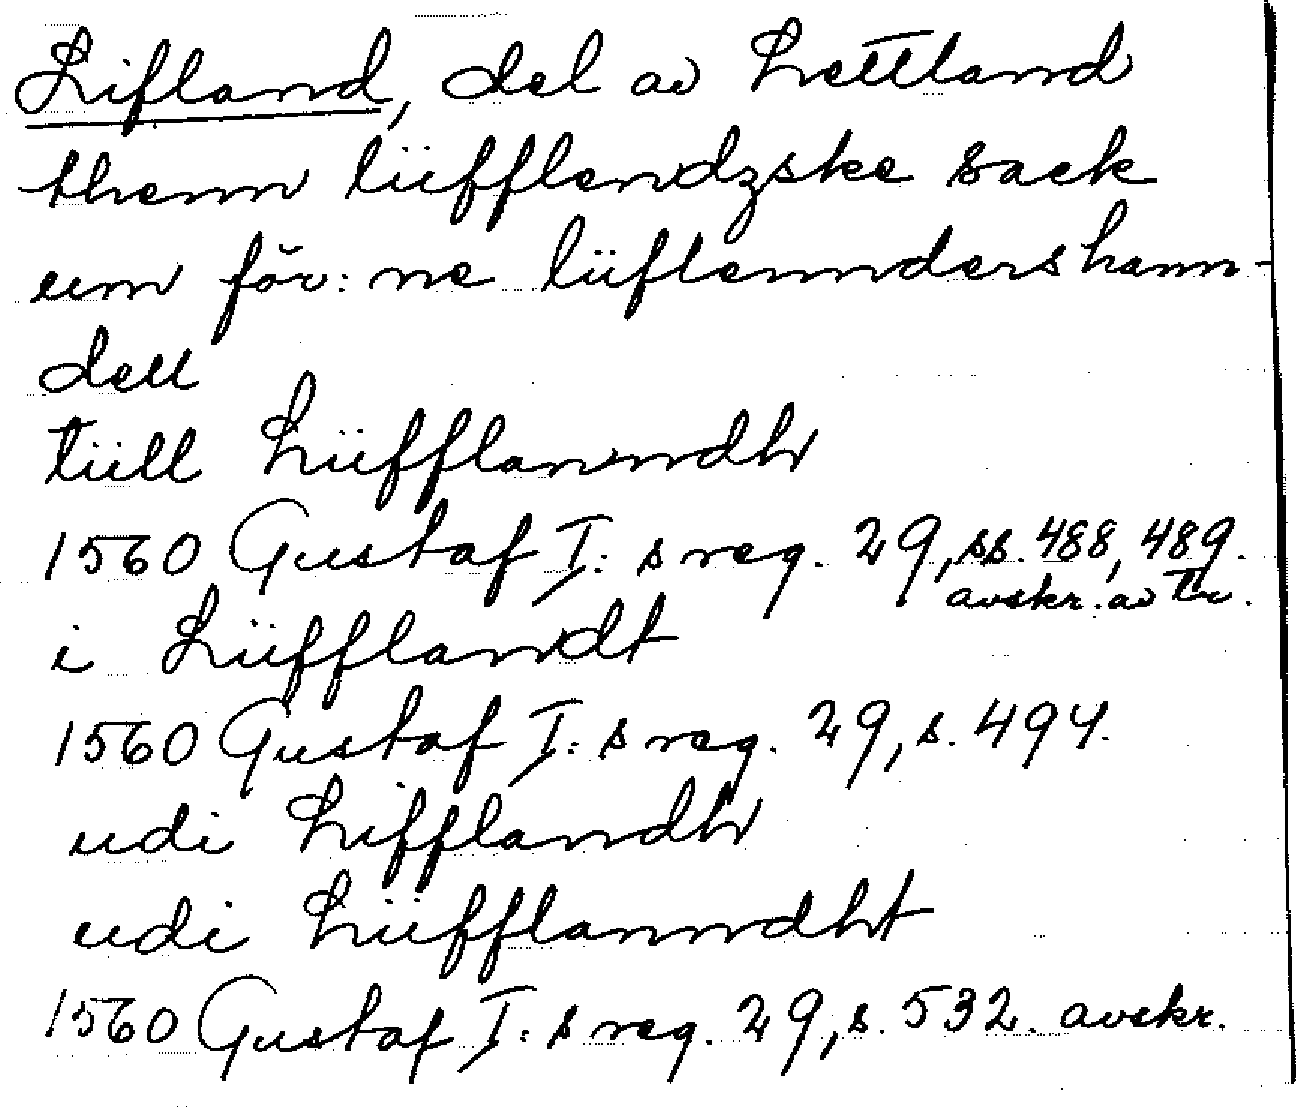 Lifland, del av Lettland
thenn lüfflendzske saek
um för:ne lüflennders hann-
dell
tüll Lüfflanndh
1560 Gustaf I:s reg. 29, ss. 488, 489.
avskr. av Tr.
i Lüfflandt
1560 Gustaf I:s reg. 29, s. 494.
udi Lifflandh
udi Lüfflanndht
1560 Gustaf I:s reg. 29, s. 532. avskr.